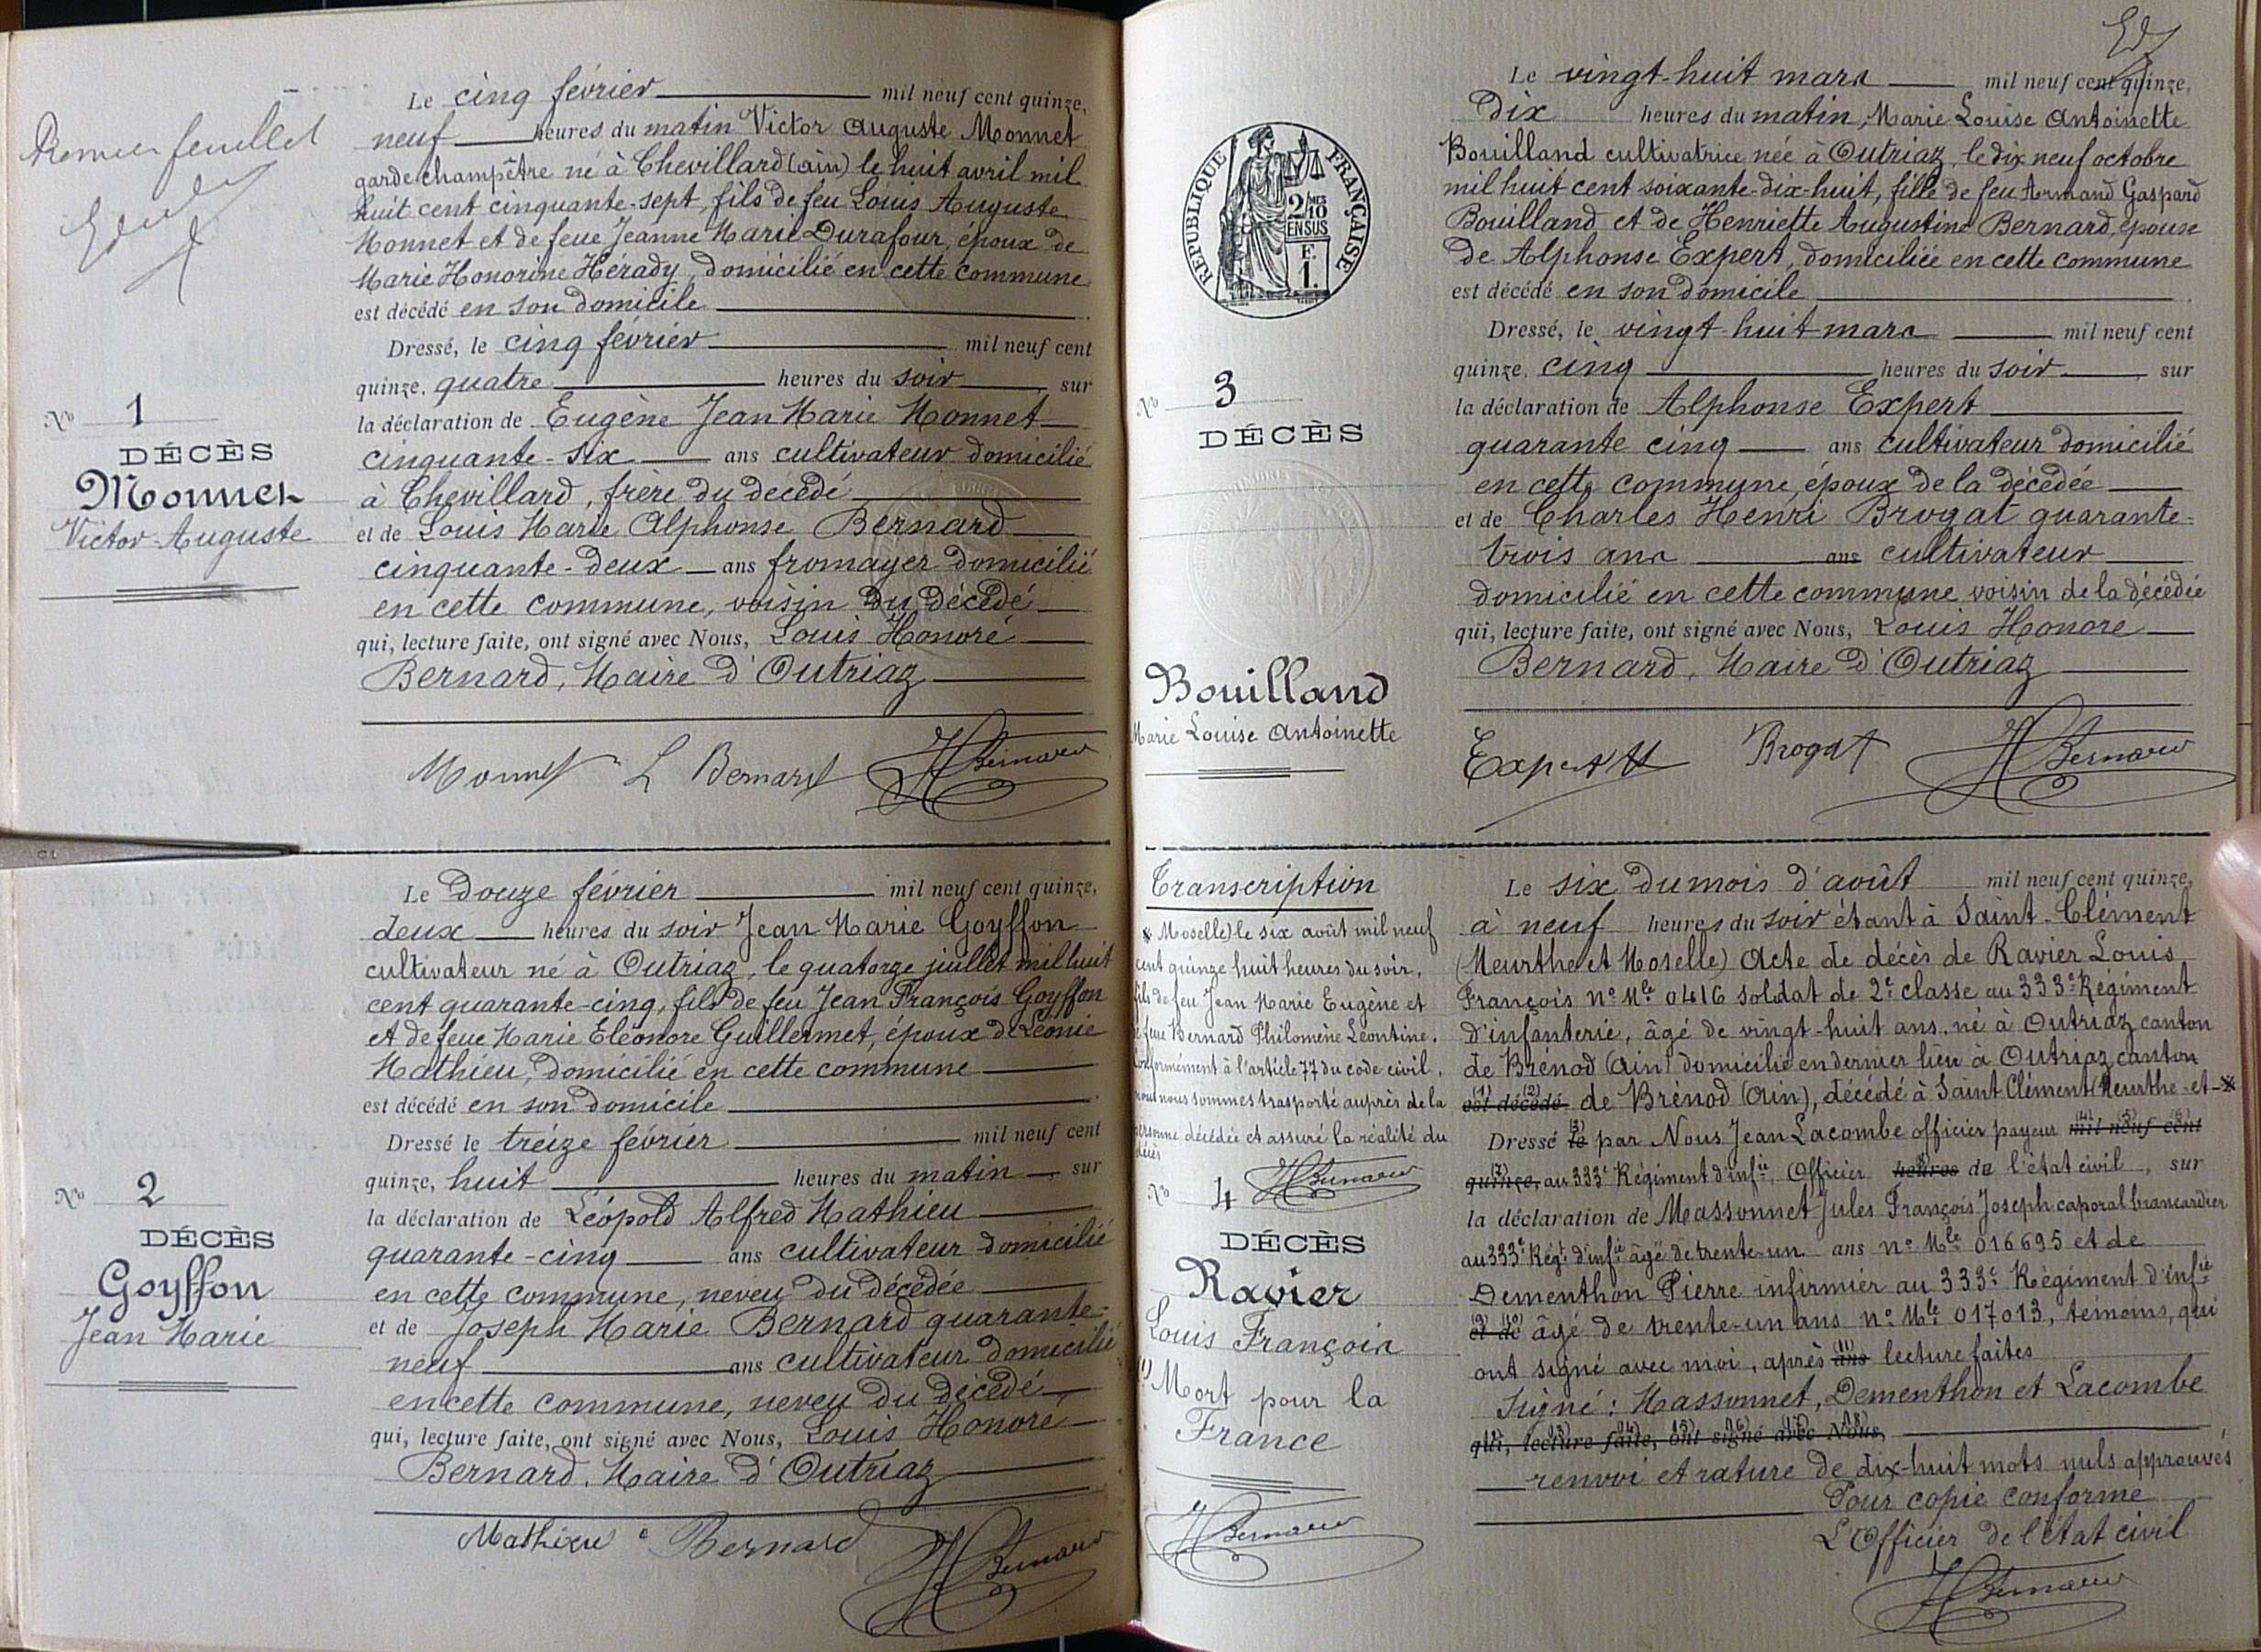 Premier feuillet
Le cinq février mil neuf cent quinze,
neuf heures du matin Victor Auguste Monnet
garde champêtre né à Chevillard (ain) le huit avril mil
huit cent cinquante-sept, fils de feu Louis Auguste
Monnet et de feue Jeanne Marie Durafour, époux de
Marie Honorine Hérady, domicilié en cette commune
est décédé en son domicile
Dressé, le cinq février mil neuf cent
quinze, quatre heures du soir, sur
la déclaration de Eugène Jean Marie Monnet
cinquante-six ans cultivateur domicilié
à Chevillard, frère du decédé
et de Louis Marie Alphonse Bernard
cinquante-deux ans fromager domicilié
en cette commune, voisin du décédé
qui, lecture faite, ont signé avec Nous, Louis Honoré
Bernard, Maire d'Outriaz
No 1
DÉCÈS
Monnet
Victor-Auguste
Monnet L Bernard H Bernard
Le Douze février mil neuf cent quinze,
deux heures du soir Jean Marie Goyffon
cultivateur né à Outriaz, le quatorze juillet mil huit
cent quarante-cinq, fils de feu Jean François Goyffon
et de feue Marie Eléonore Guillermet, époux de Léonie
Mathieu, domicilié en cette commune
est décédé en son domicile
Dressé le treize février mil neuf cent
quinze, huit heures du matin, sur
la déclaration de Léopold Alfred Mathieu
quarante-cinq ans cultivateur domicilié
en cette commune, neveu du décédée
et de Joseph Marie Bernard quarante-
neuf ans cultivateur domicilié
en cette commune, neveu du décédé
qui, lecture faite, ont signé avec Nous, Louis Honoré
Bernard, Maire d'Outriaz
No 2
DÉCÈS
Goyffon
Jean Marie
Mathieu Bernard H Bernard
RÉPUBLIQUE FRANÇAISE
2/10MES
EN SUS
F.
1.
Le vingt-huit mars mil neuf cent quinze,
Dix heures du matin, Marie Louise Antoinette
Bouilland cultivatrice née à Outriaz, le dix neuf octobre
mil huit cent soixante-dix-huit, fille de feu Armand Gaspard
Bouilland et de Henriette Augustine Bernard, épouse
de Alphonse Expert, domiciliée en cette commune
est décédé en son domicile
Dressé, le vingt-huit mars mil neuf cent
quinze, cinq heures du soir, sur
la déclaration de Alphonse Expert
quarante cinq ans cultivateur domicilié
en cette commune, époux de la décédée
et de Charles Henri Brogat quarante-
trois ans ans cultivateur
domicilié en cette commune voisin de la décédée
qui, lecture faite, ont signé avec Nous, Louis Honoré
Bernard, Maire d'Outriaz
No 3
DÉCÈS
Bouilland
Marie Louise Antoinette
Expert Brogat H Bernard
Transcription
Moselle) le six août mil neuf
cent quinze huit heures du soir,
fils de feu Jean Marie Eugène et
de feue Bernard Philomène Léontine.
Conformément à l'article 77 du code civil,
nous nous sommes trasporté auprès de la
personne décédée et assuré la réalité du
décès
H Bernard
No 4
DÉCÈS
Ravier
Louis François
(1) Mort pour la
France
H Bernard
Le six du mois d'août mil neuf cent quinze,
à neuf heures du soir étant à Saint-Clément
(Meurthe et Moselle) Acte de décès de Ravier Louis
François no Mle 0416 soldat de 2e classe au 333e Régiment
d'infanterie, âgé de vingt-huit ans, né à Outriaz canton
de Brénod (Ain) domicilié en dernier lieu à Outriaz canton
(1) (2) est décédé de Brénod (Ain), décédé à Saint Clément (Meurthe-et-
Dressé (3) le par Nous Jean Lacombe officier payeur (4) (5) (6) mil neuf cent
(7) quinze, au 333e Régiment d'infie, Officier (8) heures de l'état civil, sur
la déclaration de Massonnet Jules François Joseph caporal brancardier
au 333e Régt d'infie âgé de trente-un ans no Mle 016695 et de
Dementhon Pierre infirmier au 333e Régiment d'infie
(9) (10) et de âgé de trente-un ans no Mle 017013, témoins, qui
ont signé avec moi, après (11) ans lecture faites
Signé: Massonnet, Dementhon et Lacombe
qui, lecture faite, ont signé avec Nous,
renvoi et rature de dix-huit mots nuls approuvés
Pour copie conforme
L'Officier de l'état civil
H Bernard